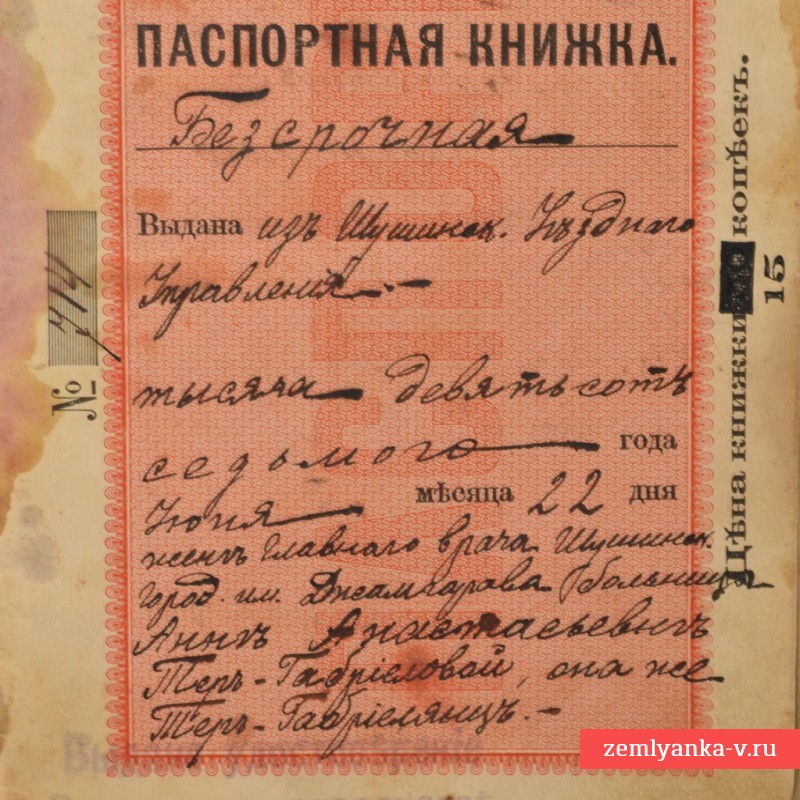 ПАСПОРТНАЯ КНИЖКА.
Безсрочная
Выдана изъ Шушинск. Уѣзднаго
Управленія
тысяча девятьсотъ
седьмого года
Июня мѣсяца 22 дня
женѣ Главнаго врача Шушинск.
город. им. Джамгарова больницы
Аннѣ Анастасьевнѣ
Теръ-Габріеловой, она же
Теръ-Габріелянцъ.
№ 714
Цѣна книжки 15 копѣекъ.
zemlyanka-v.ru